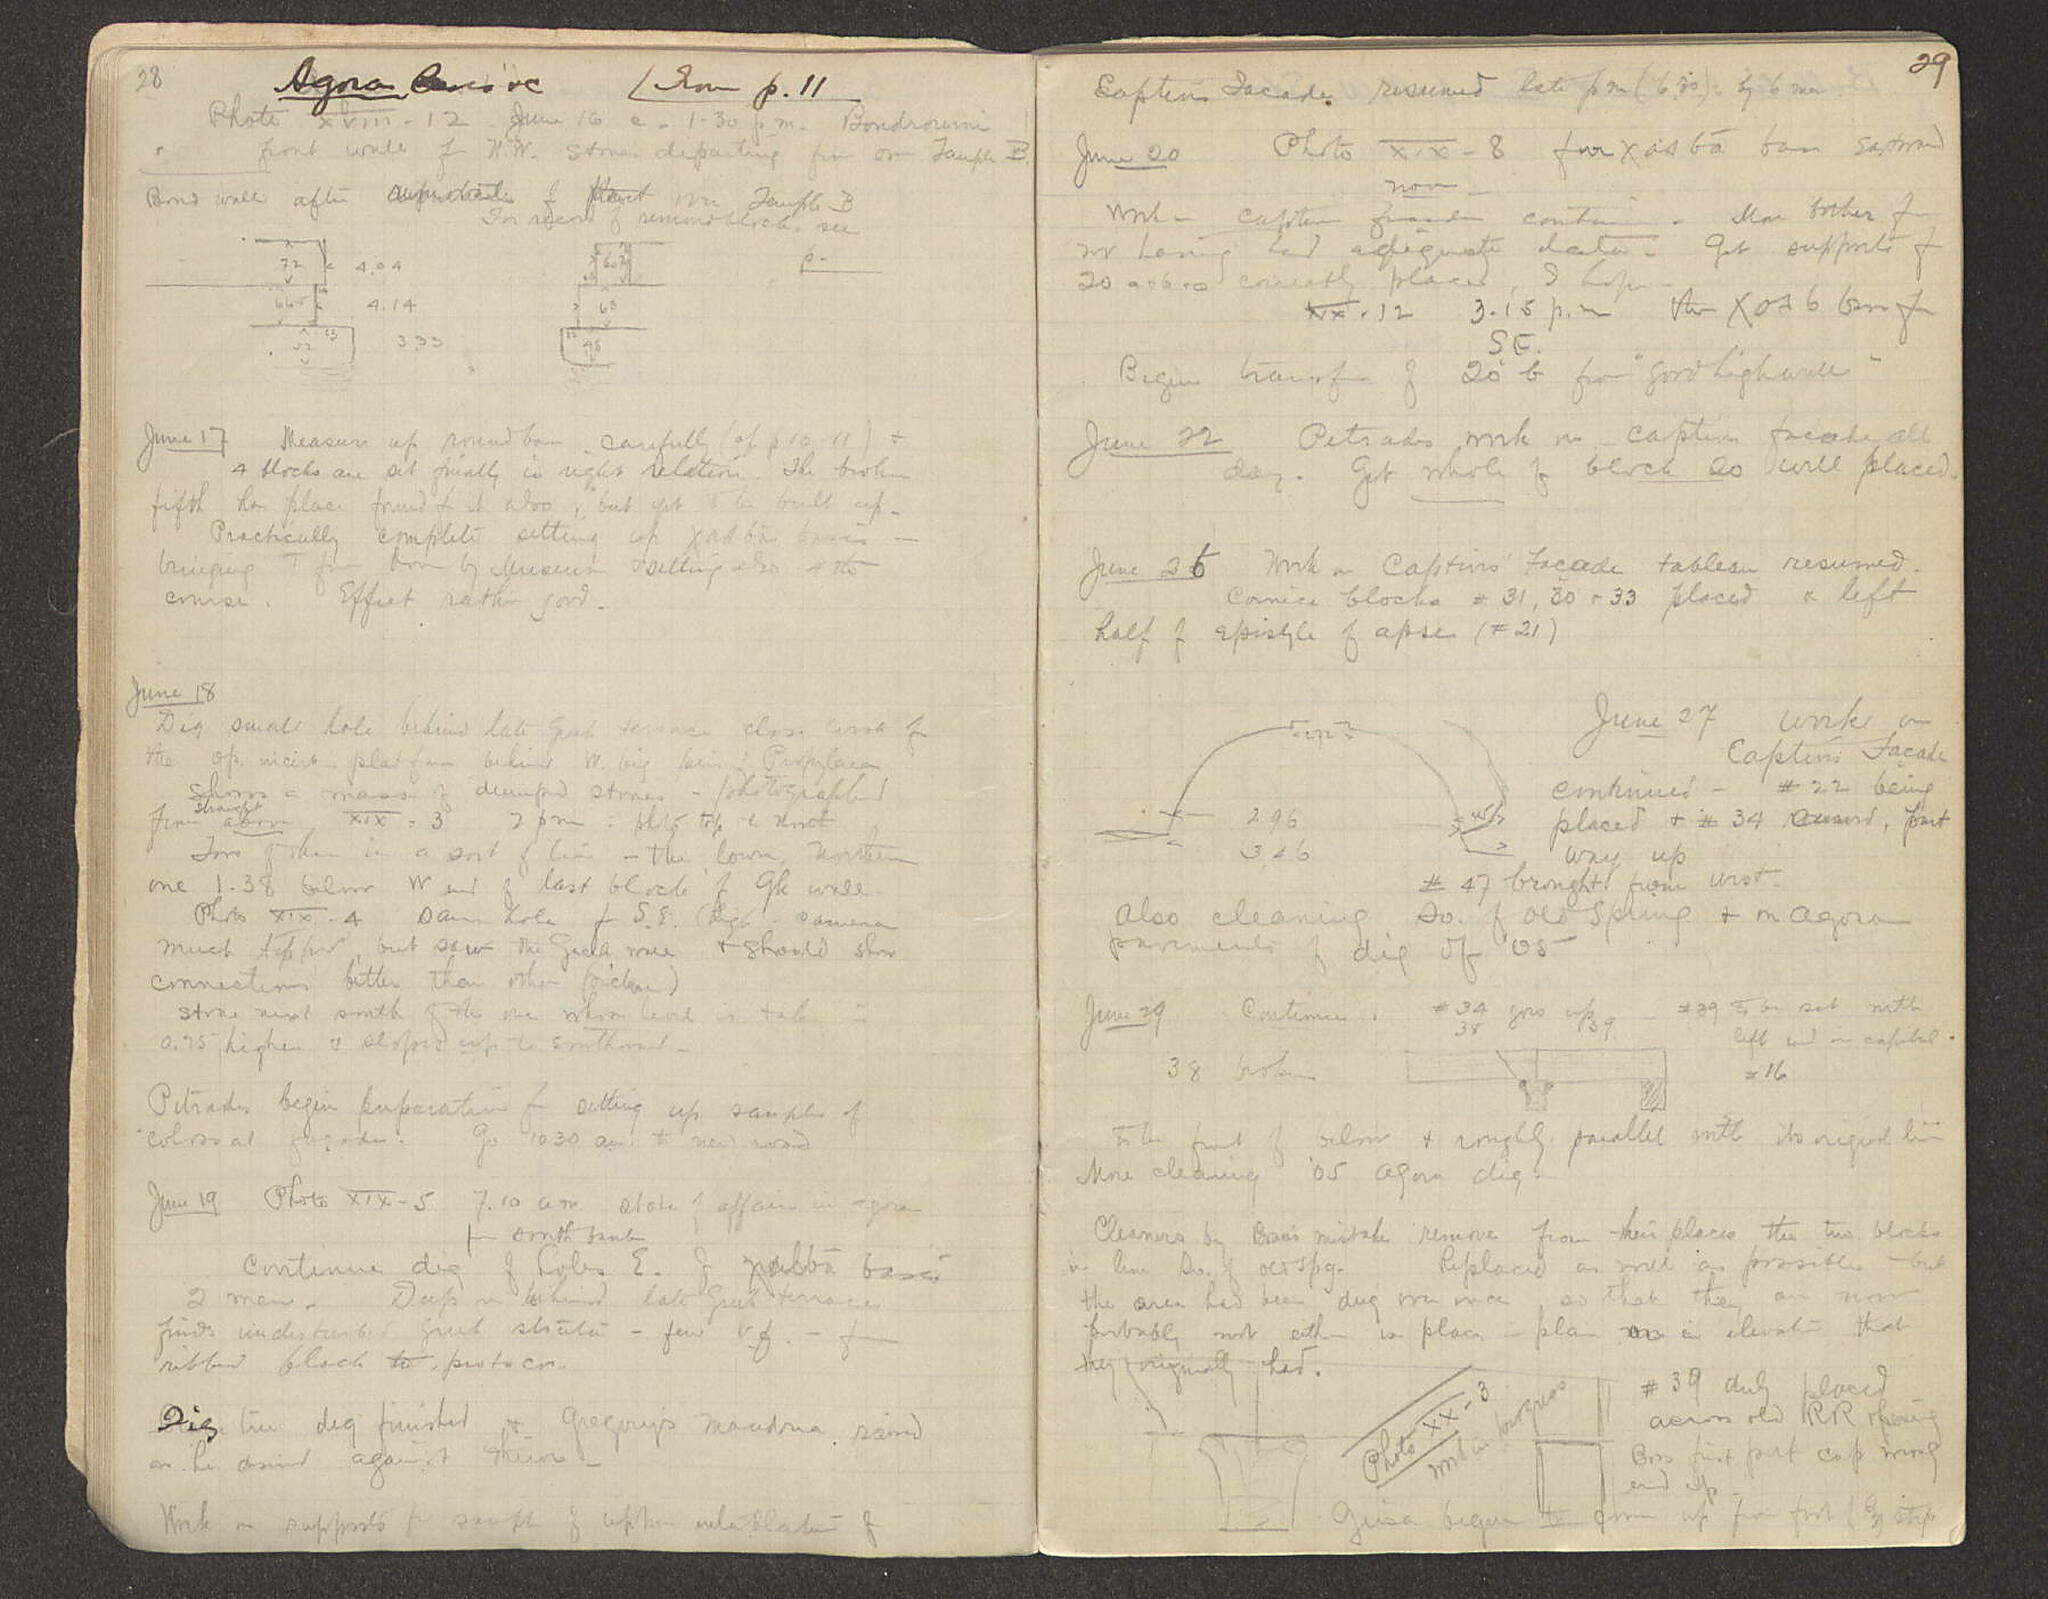 28
Agora (from p. 11
Photo XVIII-12 June 16 c. 1.30 p.m.
front wall fr N.W. stones departing from over Temple E.
Bond wall after of over Temple B
For record of removed blocks see
p.
72 4.04 602
665 4.14 63
52 53 3.33 48
June 17 Measure up round base carefully (cf p 10-11) &
4 blocks are set finally in right relation. The broken
fifth has place found for it also, but yet to be built up.
Practically complete setting up χασβα basis
bringing T from down by Museum & setting also
course. Effect rather good.
June 18
Dig small hole behind late Greek terrace close west of
the platform behind W. big Propylaea
Shows a mass of dumped stones - photographed
from straight above XIX-3 2 pm : photo top to North
Two of them in a sort of line - the lower, northern
one 1.38 below W end of last block of Gk wall.
Photo XIX-4 same hole fr S.E. (high - camera
much tipped, but saw the Greek wall & should show
connections better than other picture)
Stone next south of the one whose level is taken is
0.25 higher & slopes up to southward -
Petrades begin preparation for setting up samples of
colossal façade. Go 10 30 am to new road
June 19 Photo XIX-5 7.10 a.m. state of affairs in agora
fr south bank
Continue dig of holes E. of χασβα basis
2 men. Deep in behind late Greek terrace
finds undisturbed Greek strata - few v.f. -
ribbed black to protocor.
Dig finished & Gregory's mandra raised
as he desired against
Work on supports for sample of upper entablature of
29
Captives Facade resumed late p m (6.30) by 6 men
June 20 Photo XIX-8 four χασβα base eastward
noon
Work on captives facade continued. More bother fr
not having had adequate data. Get supports of
20 a+b correctly placed, I hope
XIX-12 3.15 p.m. the χασβ base fr
SE.
Begun transfer of 20 b from "good high wall"
June 22 Petrades work on captives facade all
day. Get whole of block 20 well placed.
June 26 Work on Captives' Facade tableau resumed.
Cornice blocks # 31, 30 + 33 placed & left
half of epistyle of apse (# 21)
June 27 Work on
Captives Façade
continued - # 22 being
placed & # 34 part
way up
# 47 brought from west.
2.96
3.46
Also cleaning So. of old Spring & in agora
pavements of dig of '05
June 29 Continue. # 34 goes up - # 39 to be set with
left end on capital
# 16
38 39
38 broken
To be front of below & roughly parallel with its original line
More cleaning '05 agora dig -
Cleaners by Boss's mistake remove from their places the two blocks
in line So. of old spg. Replaced as well as possible - but
the area had been dug over once, so that they are now
probably not either in place in plan or in elevation that
they originally had.
Photo XX-3
work in progress
# 39 duly placed
across old RR opening
Boss first put cap wrong
end up
begun to come up from foot (by steps